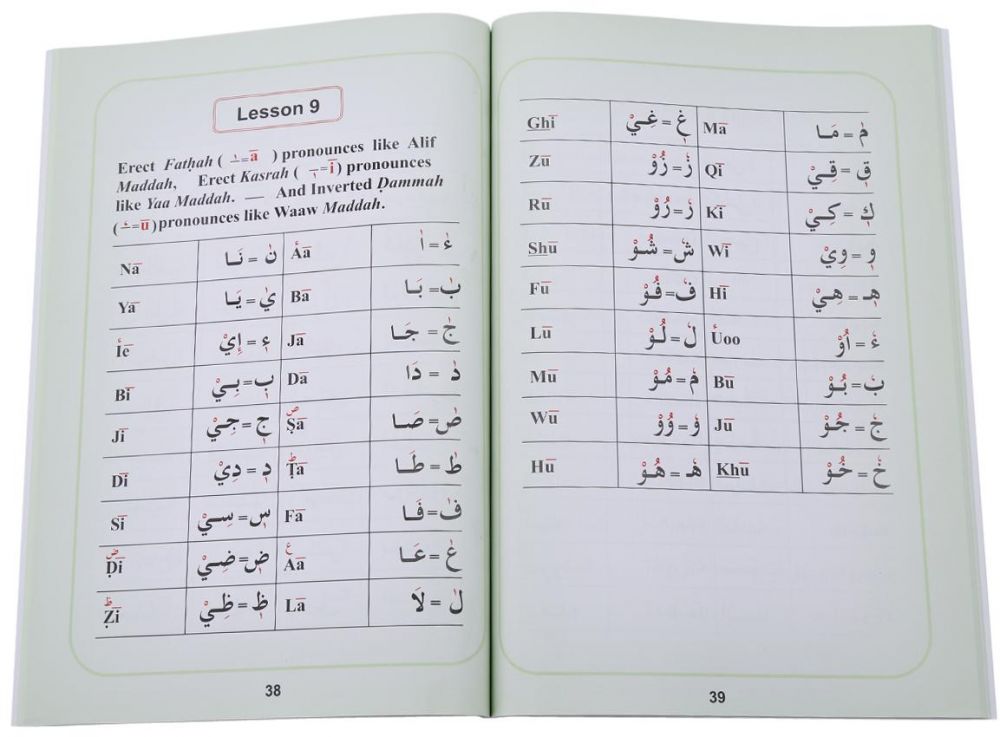 Lesson 9
Erect Fatḥah ( ـٰ=ā ) pronounces like Alif
Maddah, Erect Kasrah ( ـٖ=ī ) pronounces
like Yaa Maddah. — And Inverted Ḍammah
( ـٗ=ū ) pronounces like Waaw Maddah.
Nā نٰ = نَـا Áā ءٰ = اٰ
Yā يٰ = يَـا Bā بٰ = بَـا
Íē ءٖ = إِيْ Jā جٰ = جَـا
Bī بٖ = بِـيْ Dā دٰ = دَا
Jī جٖ = جِـيْ Ṣā صٰ = صَـا
Dī دٖ = دِيْ Ṭā طٰ = طَـا
Sī سٖ = سِـيْ Fā فٰ = فَـا
Ḍī ضٖ = ضِـيْ Aā عٰ = عَـا
Ẓī ظٖ = ظِـيْ Lā لٰ = لَا
38
Ghī غٖ = غِـيْ Mā مٰ = مَـا
Zū زٗ = زُوْ Qī قٖ = قِـيْ
Rū رٗ = رُوْ Kī كٖ = كِـيْ
Shū شٗ = شُـوْ Wī وٖ = وِيْ
Fū فٗ = فُـوْ Hī هٖـ = هِـيْ
Lū لٗ = لُـوْ Úoo ءٗ = أُوْ
Mū مٗ = مُـوْ Bū بٗ = بُـوْ
Wū وٗ = وُوْ Jū جٗ = جُـوْ
Hū هٗـ = هُـوْ Khū خٗ = خُـوْ
39